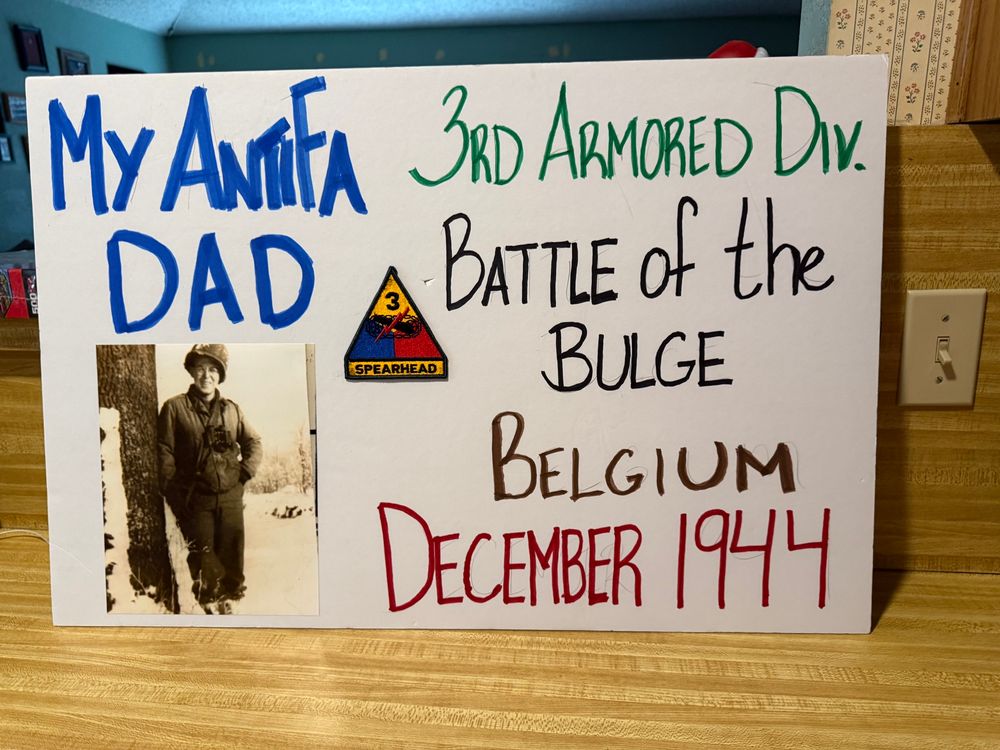 My AntiFa
DAD
3RD ARMORED DIV.
BATTLE of the
BULGE
3
SPEARHEAD
BELGIUM
DECEMBER 1944